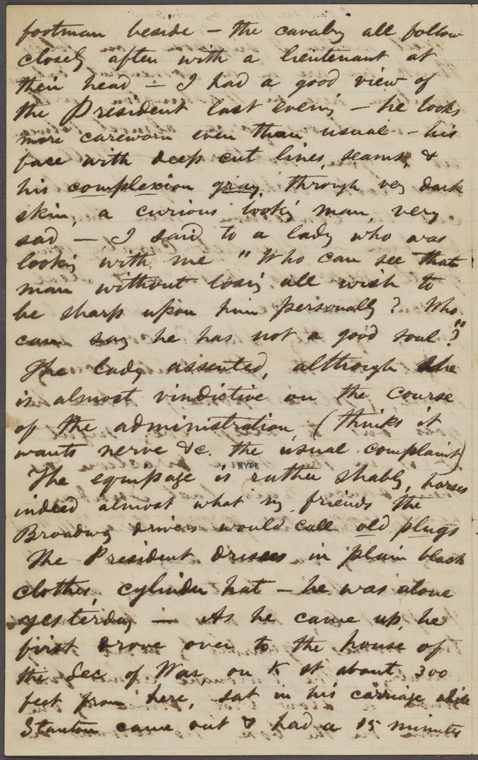 footman beside – the cavalry all follow
closely after with a lieutenant at
their head – I had a good view of
the President last evening – he looks
more careworn even than usual – his
face with deep cut lines, seams, &
his complexion gray, through very dark
skin, a curious looking man, very
sad – I said to a lady who was
looking with me "Who can see that
man without losing all wish to
be sharp upon him personally? Who
can say he has not a good soul?"
The lady assented, although she
is almost vindictive on the course
of the administration, (thinks it
wants nerve &c. the usual complaint)
The equipage is rather shabby, horses
NYPL
indeed almost what my friends the
Broadway drivers would call old plugs
The President dresses in plain black
clothes, cylinder hat – he was alone
yesterday – As he came up, he
first drove over to the house of
the Sec of War on K st about 300
feet from here, sat in his carriage while
Stanton came out & had a 15 minutes